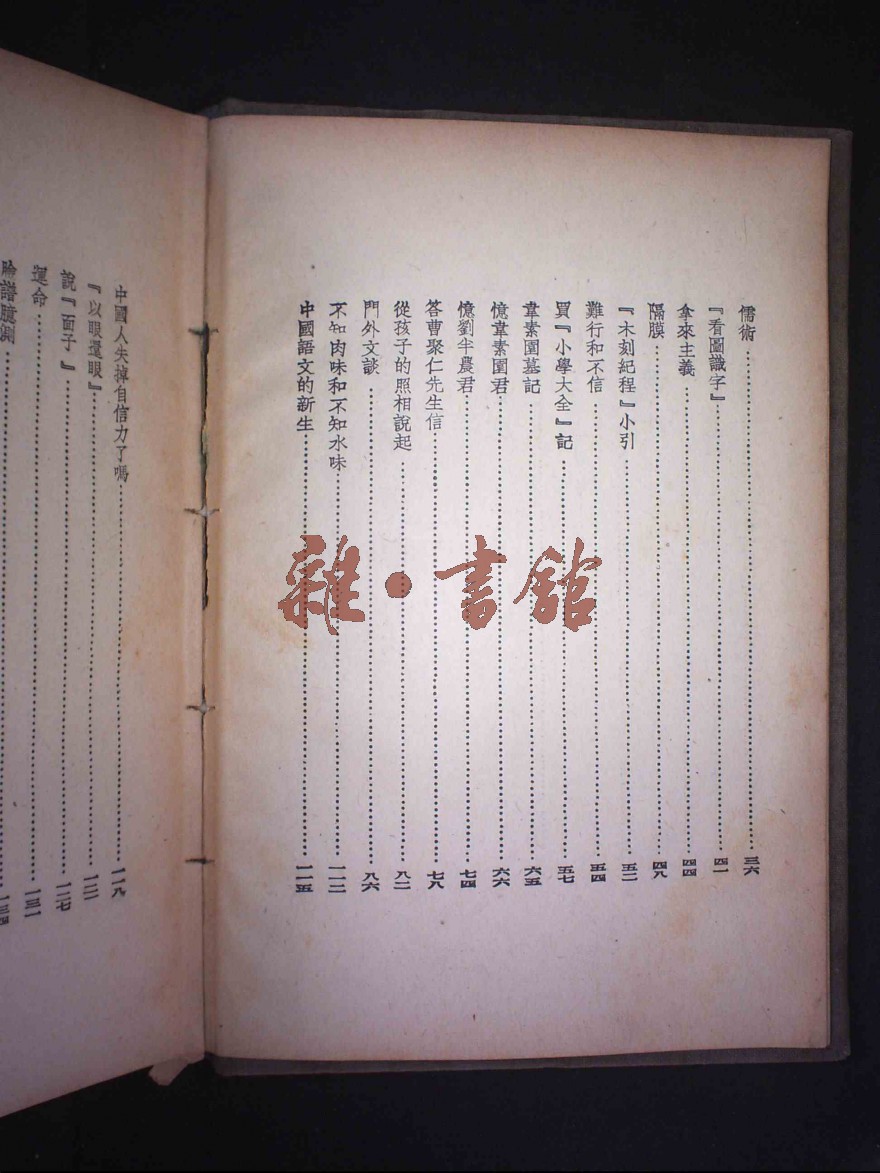 儒術……三六
『看圖識字』……四一
拿來主義……四四
隔膜……四八
『木刻紀程』小引……五二
難行和不信……五四
買『小學大全』記……五七
韋素園墓記……六五
憶韋素園君……六六
憶劉半農君……七四
答曹聚仁先生信……七八
從孩子的照相說起……八二
門外文談……八六
不知肉味和不知水味……一一二
中國語文的新生……一一五
中國人失掉自信力了嗎……一一八
『以眼還眼』……一二一
說『面子』……一二七
運命……一三一
臉譜臆測……一三四
雜·書館